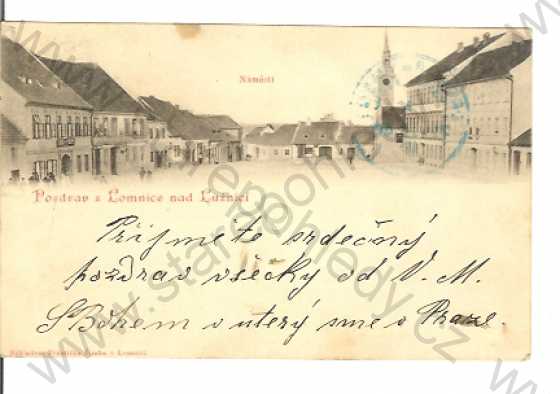 Náměstí
Pozdrav z Lomnice nad Lužnicí
Přijměte srdečný
pozdrav všecky od V. M.
S Bohem v uterý sme v Praze.
www.stare-pohledy.cz